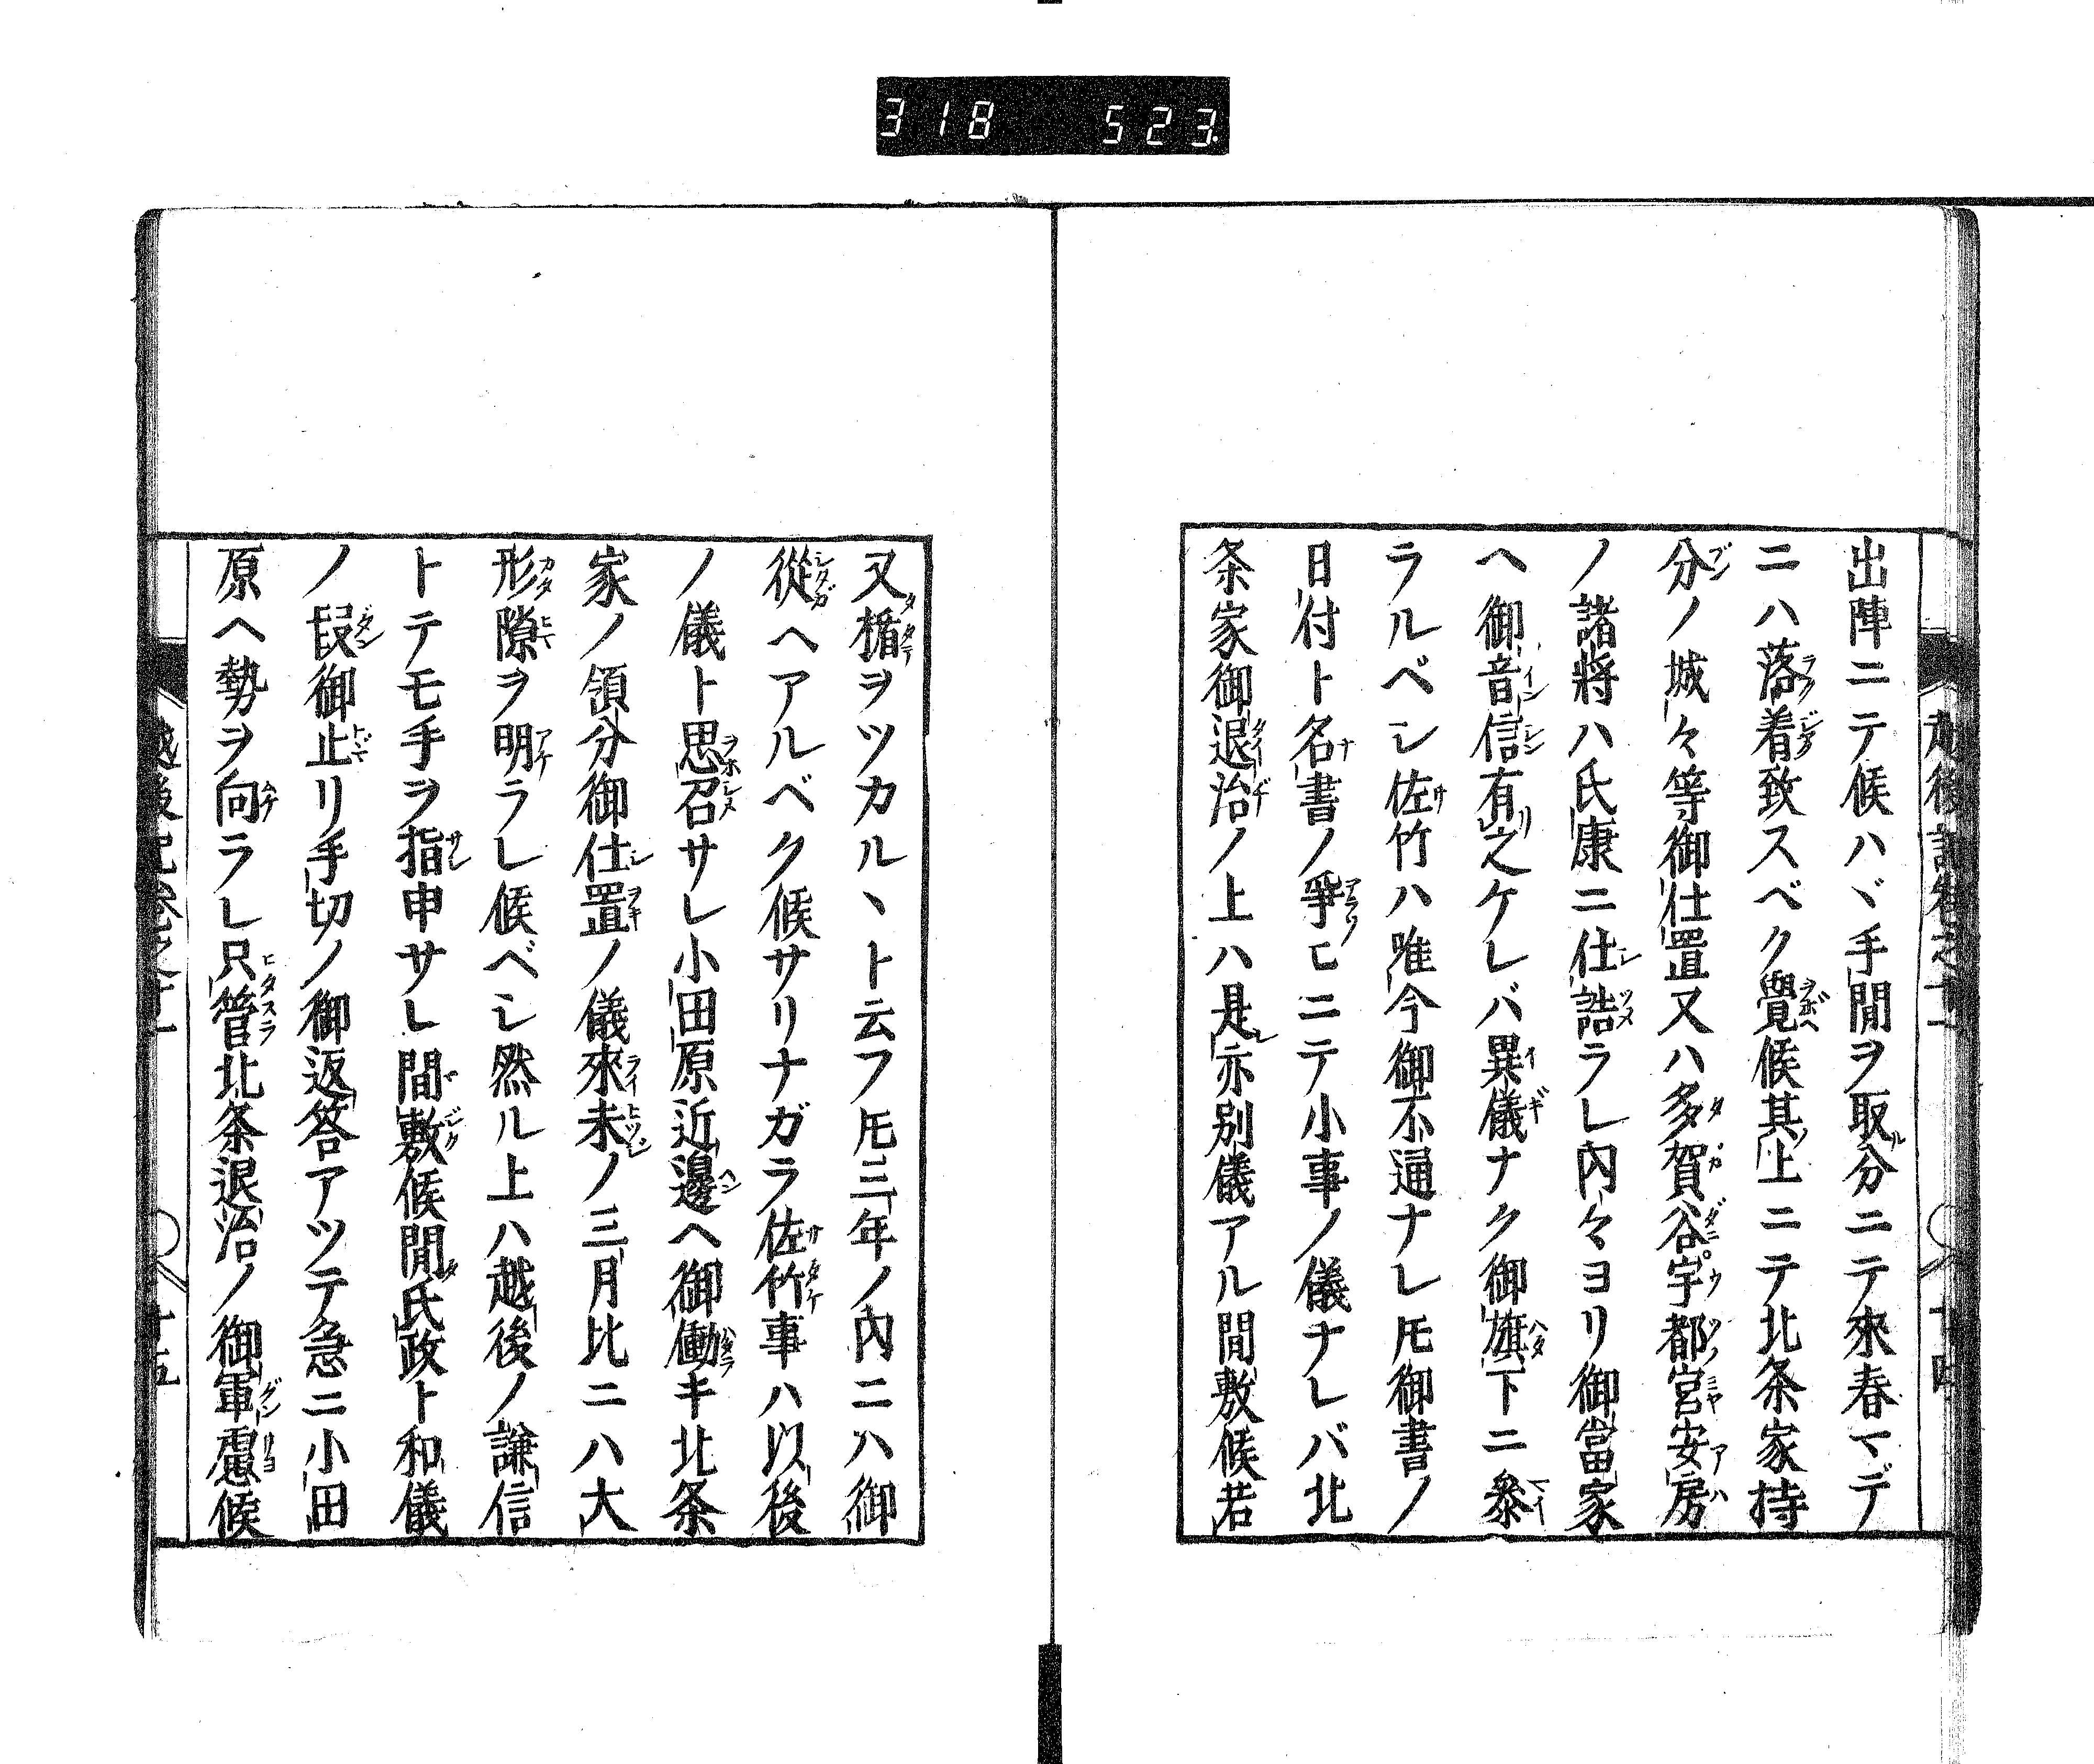 318 523
出陣ニテ候ハヾ手間ヲ取分ニテ來春マデ
ニハ落着致スベク覺候其上ニテ北条家持
分ノ城々等御仕置又ハ多賀谷宇都宮安房
ノ諸將ハ氏康ニ仕詰ラレ內々ヨリ御當家
ヘ御音信有之ケレバ異儀ナク御旗下ニ參
ラルベシ佐竹ハ唯今御不通ナレ𪜈御書ノ
日付ト名書ノ爭ヒニテ小事ノ儀ナレバ北
条家御退治ノ上ハ是亦別儀アル間敷候若
又楯ヲツカルヽト云フ𪜈三年ノ內ニハ御
從ヘアルベク候サリナガラ佐竹事ハ以後
ノ儀ト思召サレ小田原近邊ヘ御働キ北条
家ノ領分御仕置ノ儀來未ノ三月比ニハ大
形隙ヲ明ラレ候ベシ然ル上ハ越後ノ謙信
トテモ手ヲ指申サレ間敷候間氏政ト和儀
ノ段御止リ手切ノ御返答アツテ急ニ小田
原ヘ勢ヲ向ラレ只管北条退治ノ御軍慮候